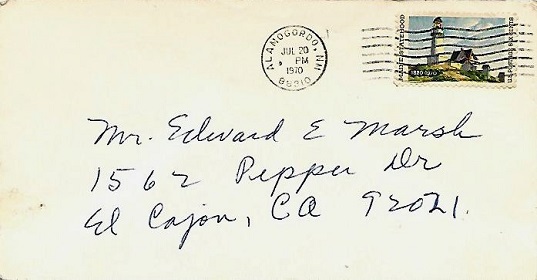 ALAMOGORDO, NM
JUL 20
PM
1970
88310
MAINE STATEHOOD
1820-1970
U.S. POSTAGE SIX CENTS
Mr. Edward E Marsh
1562 Pepper Dr
El Cajon, CA 92021.